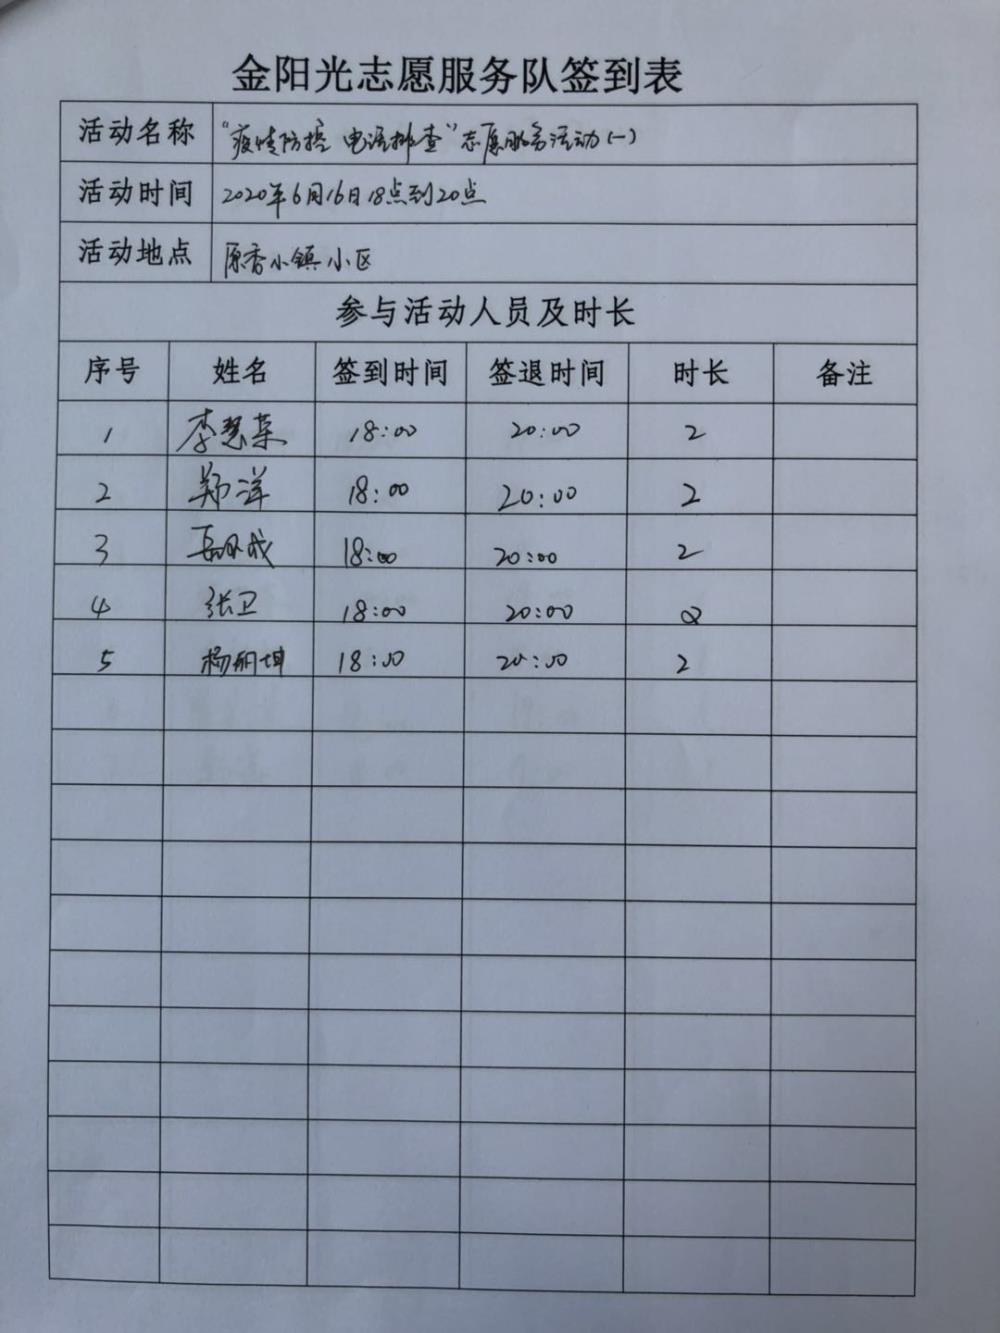 金阳光志愿服务队签到表
活动名称 “疫情防控 电话排查”志愿服务活动(一)
活动时间 2020年6月16日18点到20点
活动地点 原香小镇小区
参与活动人员及时长
序号 姓名 签到时间 签退时间 时长 备注
1 李慧荣 18:00 20:00 2
2 郑洋 18:00 20:00 2
3 18:00 20:00 2
4 张卫 18:00 20:00 2
5 杨丽坤 18:00 20:00 2